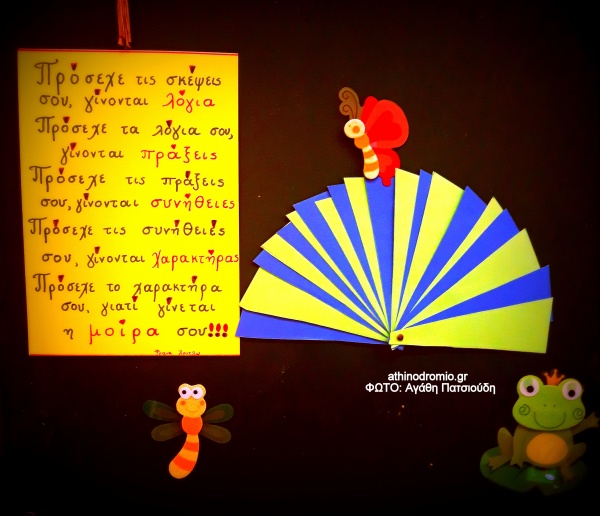 Πρόσεχε τις σκέψεις
σου, γίνονται λόγια
Πρόσεχε τα λόγια σου,
γίνονται πράξεις
Πρόσεχε τις πράξεις
σου, γίνονται συνήθειες
Πρόσεχε τις συνήθειές
σου, γίνονται χαρακτήρας
Πρόσεχε το χαρακτήρα
σου, γιατί γίνεται
η μοίρα σου!!!
athinodromio.gr
ΦΩΤΟ: Αγάθη Πατσιούδη